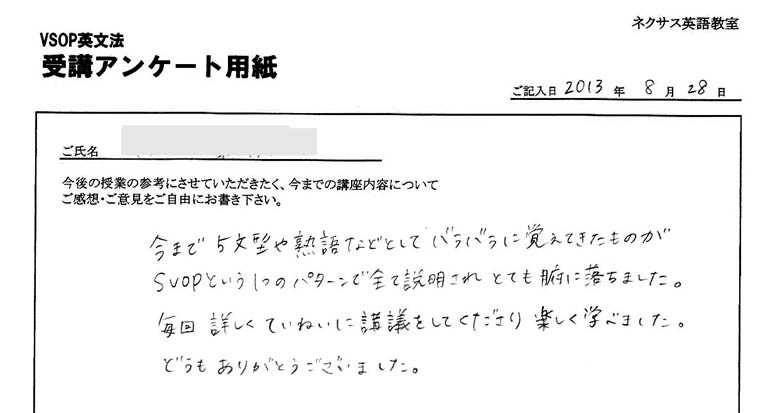 ネクサス英語教室
VSOP英文法
受講アンケート用紙
ご記入日 2013 年 8 月 28 日
ご氏名
今後の授業の参考にさせていただきたく、今までの講座内容について
ご感想・ご意見をご自由にお書き下さい。
今まで 5文型や熟語などとして バラバラに覚えてきたものが
SVOPという1つのパターンで全て説明され とても腑に落ちました。
毎回 詳しく ていねいに講議をしてくださり 楽しく学べました。
どうも ありがとうございました。